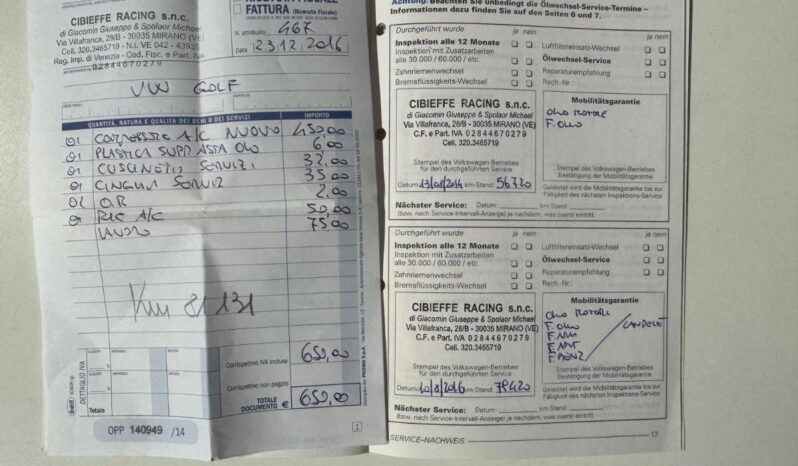 CIBIEFFE RACING s.n.c.
di Giacomin Giuseppe & Spolaor Michael
Via Villafranca, 28/B - 30035 MIRANO (VE)
Cell. 320.3465719 - N.I. VE 042 - 43935
Reg. Imp. di Venezia - Cod. Fisc. e Part. IVA
02844670279
FATTURA (Ricevuta Fiscale)
N. attribuito 467
Data 23.12.2016
VW GOLF
QUANTITÀ, NATURA E QUALITÀ DEI BENI O DEI SERVIZI IMPORTO
01 COMPRESSORE A/C NUOVO 450,00
01 PLASTICA SUPP ASTA OLIO 6,00
01 CUSCINETTO SERVIZI 32,00
01 CINGHIA SERVIZI 35,00
02 OR 2,00
01 RIC A/C 50,00
LAVORO 75,00
Km 81131
DETTAGLIO IVA
Corrispettivo IVA inclusa 650,00
Corrispettivo non pagato
Totale
TOTALE DOCUMENTO € 650,00
OPP 140949 /14
1
Achtung: Beachten Sie unbedingt die Ölwechsel-Service-Termine -
Informationen dazu finden Sie auf den Seiten 6 und 7.
Durchgeführt wurde ja nein ja nein
Inspektion alle 12 Monate Luftfiltereinsatz-Wechsel
Inspektion mit Zusatzarbeiten Ölwechsel-Service
alle 30.000 / 60.000 / etc. Reparaturempfehlung
Zahnriemenwechsel Rech.-Nr.:
Bremsflüssigkeits-Wechsel
CIBIEFFE RACING s.n.c.
di Giacomin Giuseppe & Spolaor Michael
Via Villafranca, 28/B - 30035 MIRANO (VE)
C.F. e Part. IVA 02844670279
Cell. 320.3465719
Mobilitätsgarantie
OLIO MOTORE
F. OLIO
Stempel des Volkswagen-Betriebs
für den durchgeführten Service
Stempel des Volkswagen-Betriebes
Bestätigung der Mobilitätsgarantie
Datum: 13/08/2014 km-Stand: 56720
Geleistet wird die Mobilitätsgarantie bis zur
Fälligkeit des nächsten Inspektions-Service
Nächster Service: Datum: km-Stand
(bzw. nach Service-Intervall-Anzeige) je nachdem, was zuerst eintritt
Durchgeführt wurde ja nein ja nein
Inspektion alle 12 Monate Luftfiltereinsatz-Wechsel
Inspektion mit Zusatzarbeiten Ölwechsel-Service
alle 30.000 / 60.000 / etc. Reparaturempfehlung
Zahnriemenwechsel Rech.-Nr.:
Bremsflüssigkeits-Wechsel
CIBIEFFE RACING s.n.c.
di Giacomin Giuseppe & Spolaor Michael
Via Villafranca, 28/B - 30035 MIRANO (VE)
C.F. e Part. IVA 02844670279
Cell. 320.3465719
Mobilitätsgarantie
OLIO MOTORE
F. OLIO CANDELE
Stempel des Volkswagen-Betriebs
für den durchgeführten Service
Stempel des Volkswagen-Betriebes
Bestätigung der Mobilitätsgarantie
Datum: 10/8/2016 km-Stand: 78420
Geleistet wird die Mobilitätsgarantie bis zur
Fälligkeit des nächsten Inspektions-Service
Nächster Service: Datum: km-Stand
(bzw. nach Service-Intervall-Anzeige) je nachdem, was zuerst eintritt
SERVICE-NACHWEIS 17